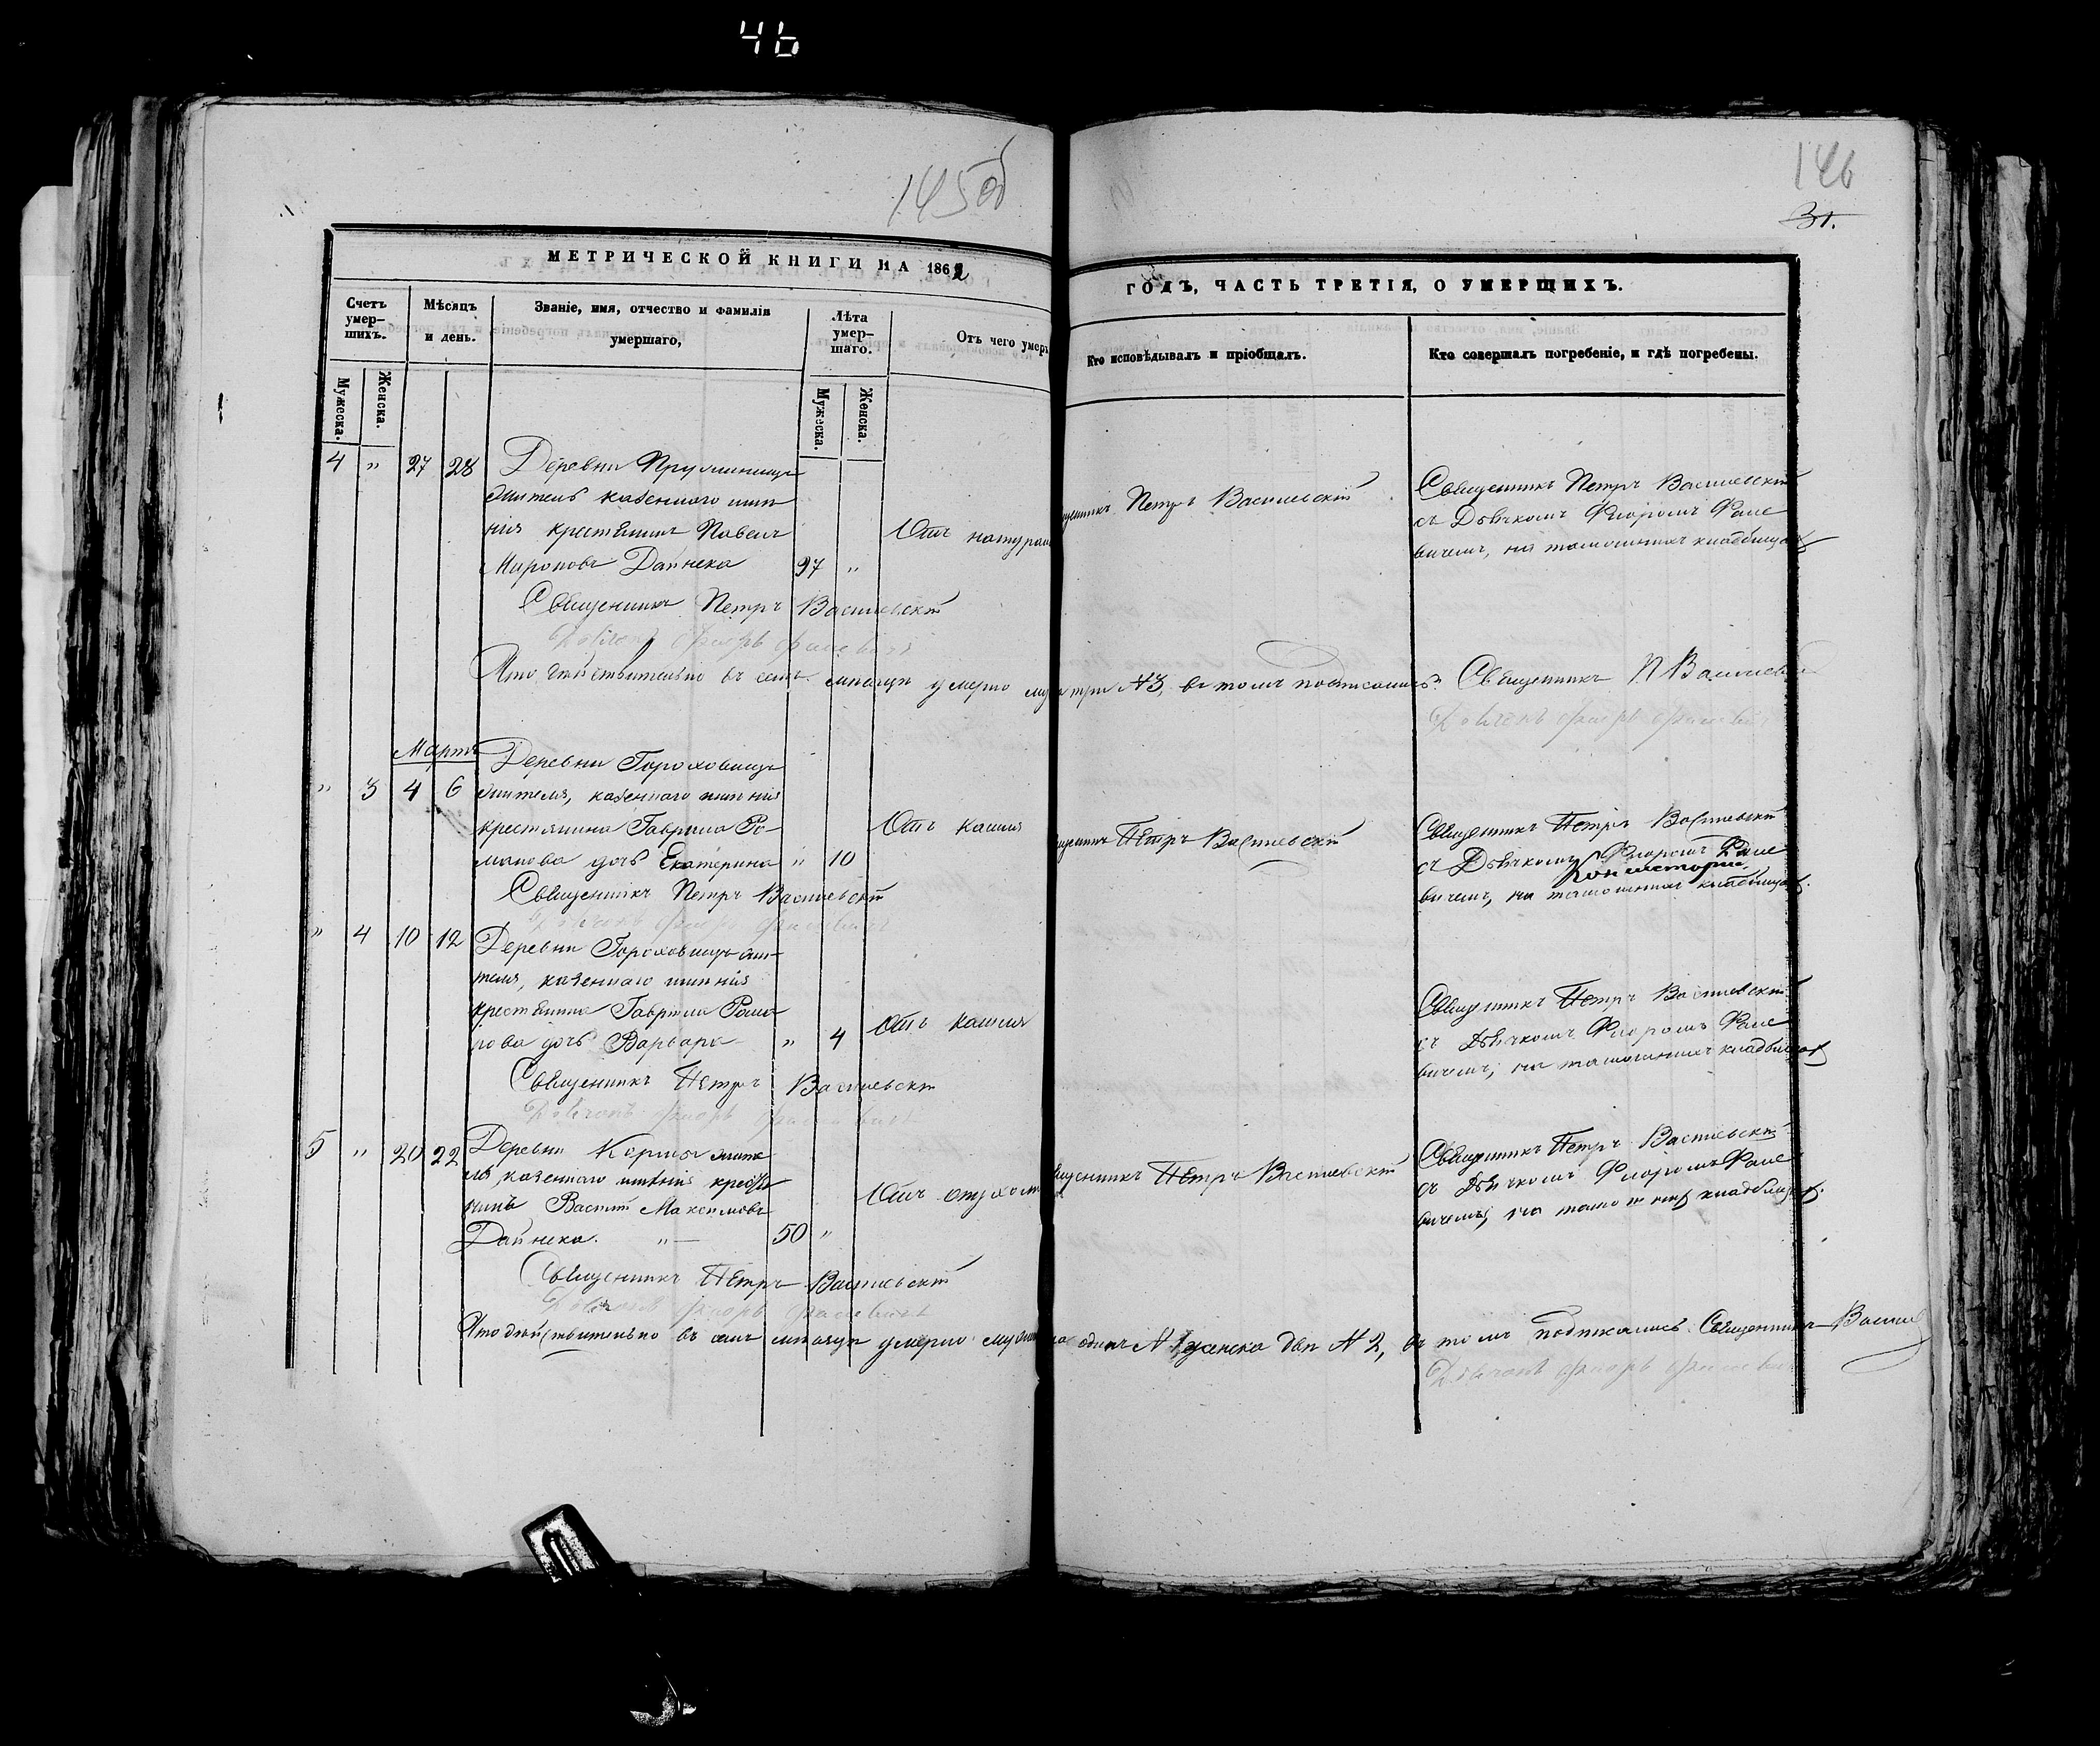 46
145об
146
31.
МЕТРИЧЕСКОЙ КНИГИ НА 1862
ГОДЪ, ЧАСТЬ ТРЕТІЯ, О УМЕРШИХЪ.
Счетъ умер-шихъ.
Мѣсяцъ и день.
Званіе, имя, отчество и фамилія умершаго,
Лѣта умер-шаго.
Отъ чего умеръ
Кто исповѣдывалъ и пріобщалъ.
Кто совершалъ погребеніе, и гдѣ погребены.
Мужеска.
Женска.
Мужеска.
Женска.
4 " 27 28 Деревни
житель казеннаго имѣ
нія крестьянинъ Павелъ
Мироновъ Дайнеко 97 "
Отъ натурал
Петръ Василевскій
Священникъ Петръ Василевскій
съ Дьячкомъ Флоромъ Фале
вичемъ, на тамошнихъ кладбищахъ
Священникъ Петръ Василевскій
Дьячокъ Флоръ Фалевичъ
Что дѣйствительно въ семъ мѣсяцѣ умерло три №3, въ томъ подписались: Священникъ П Василев
Дьячокъ Флоръ Фалевичъ
Мартъ
" 3 4 6 Деревни Гороховищъ
жителя, казеннаго имѣнія
крестьянина Гаврила Ро-
манова дочь Екатерина " 10
Отъ кашля
Петръ Василевскій
Священникъ Петръ Василевскій
съ Дьячкомъ Флоромъ Фале
вичемъ, на тамошнихъ кладбищахъ.
Священникъ Петръ Василевскій
Дьячокъ Флоръ Фалевичъ
" 4 10 12 Деревни Гороховищъ жи-
теля, казеннаго имѣнія
крестьянина Гаврила Рома
нова дочь Варвара " 4
Отъ кашля
Священникъ Петръ Василевскій
съ Дьячкомъ Флоромъ Фале
вичемъ, на тамошнихъ кладбищахъ
Священникъ Петръ Василевскій
Дьячокъ Флоръ Фалевичъ
5 " 20 22 Деревни Корма жите
ль казеннаго имѣнія кресть
нинъ Василій Максимовъ
Дайнеко. " 50 "
Священникъ Петръ Василевскій
Священникъ Петръ Василевскій
съ Дьячкомъ Флоромъ Фале
вичемъ, на тамошнихъ кладбищахъ.
Священникъ Петръ Василевскій
Дьячокъ Флоръ Фалевичъ
Что дѣйствительно въ семъ мѣсяцѣ умерло одинъ №1 женска два №2, въ томъ подписались Священникъ Васил
Дьячокъ Флоръ Фалевичъ